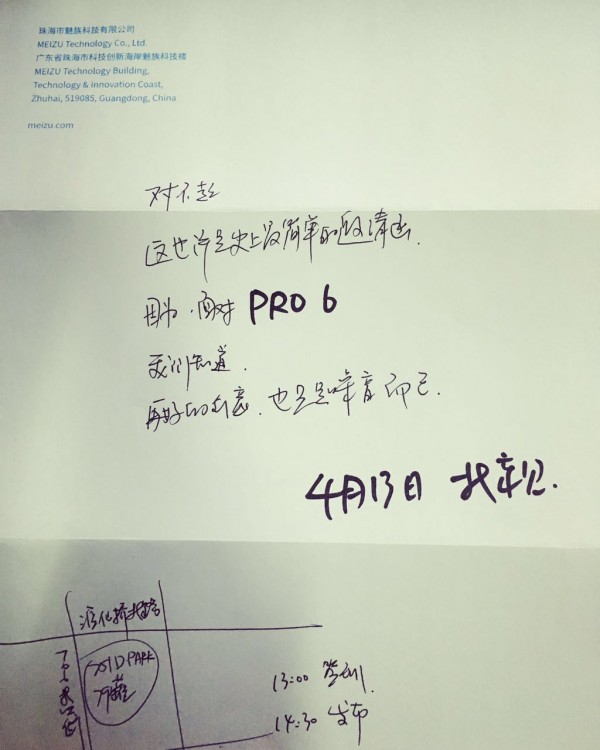 珠海市魅族科技有限公司
MEIZU Technology Co., Ltd.
广东省珠海市科技创新海岸魅族科技楼
MEIZU Technology Building,
Technology & Innovation Coast,
Zhuhai, 519085, Guangdong, China
meizu.com
对不起
这也许是史上最简单的邀请函.
因为,面对 PRO 6
我们知道.
再好的创意,也只是噪音而已.
4月13日 北京见.
PARK
13:00 签到
14:30 发布